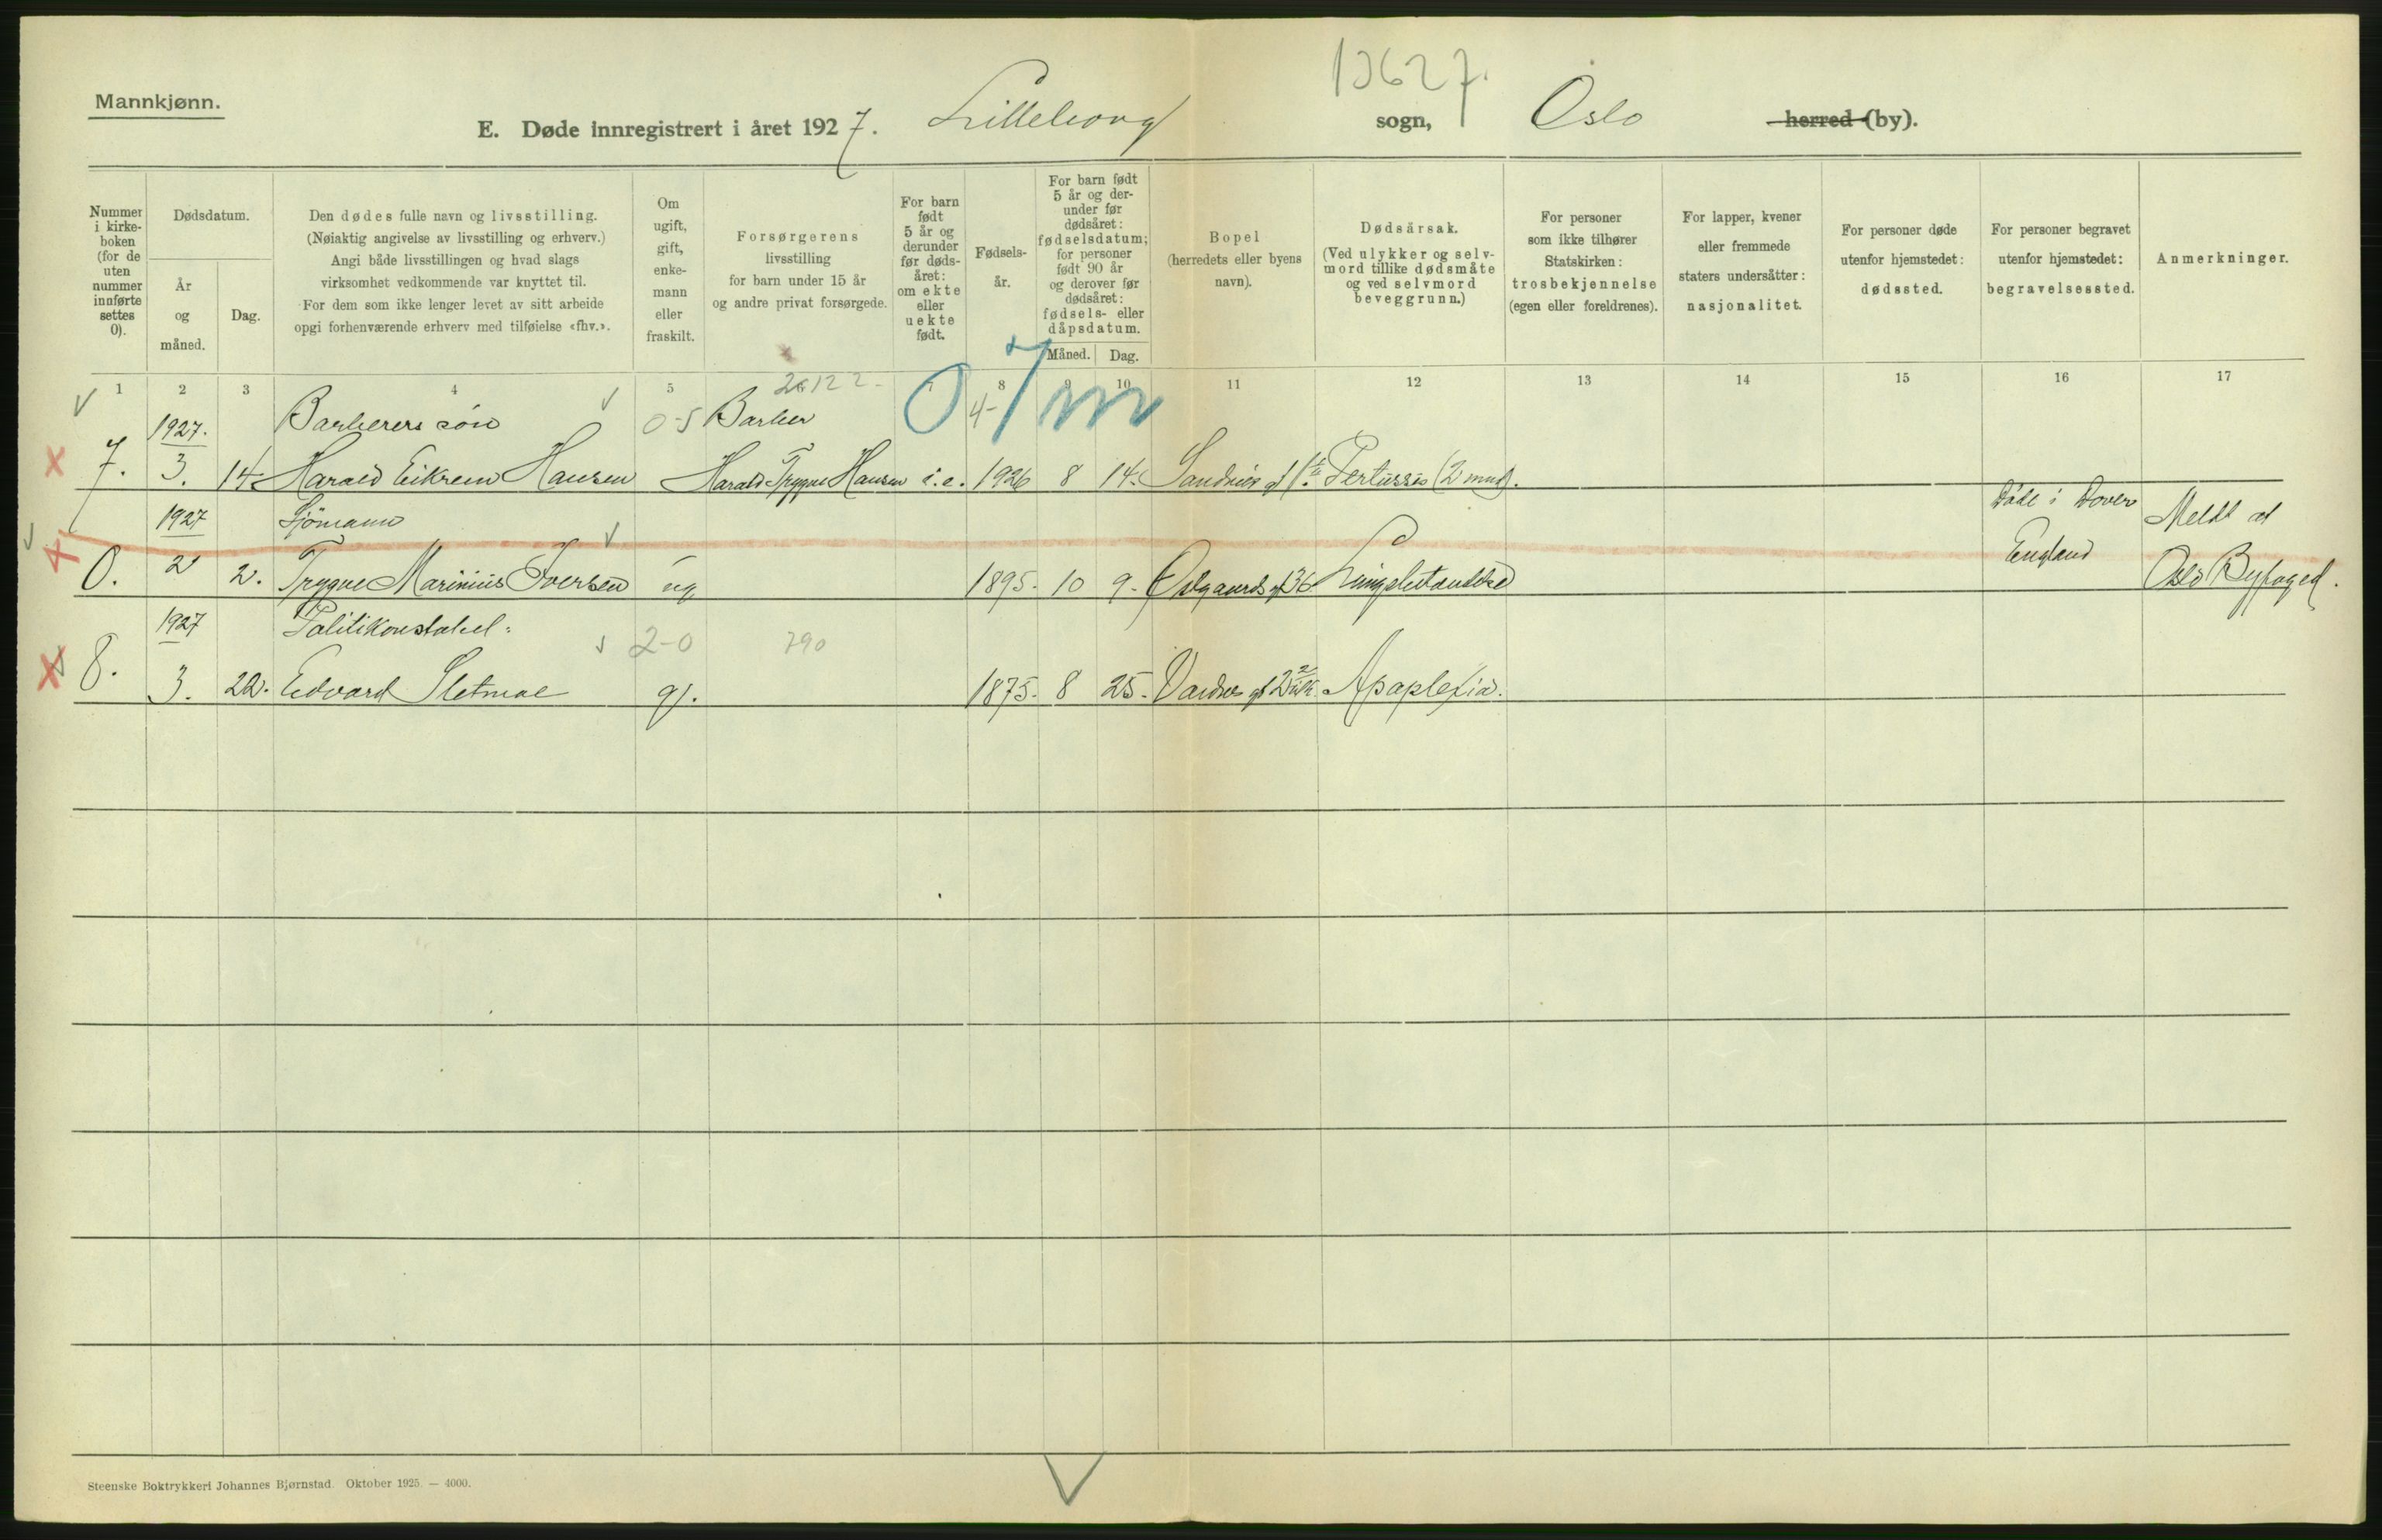 Mannkjønn.
13627.
E. Døde innregistrert i året 1927. Lilleborg sogn, Oslo herred (by).
Nummer i kirke- boken (for de uten nummer innførte settes 0).
Dødsdatum.
År og måned.
Dag.
Den dødes fulle navn og livsstilling.
(Nøiaktig angivelse av livsstilling og erhverv.)
Angi både livsstillingen og hvad slags
virksomhet vedkommende var knyttet til.
For dem som ikke lenger levet av sitt arbeide
opgi forhenværende erhverv med tilføielse «fhv.».
Om ugift, gift, enke- mann eller fraskilt.
Forsørgerens
livsstilling
for barn under 15 år
og andre privat forsørgede.
For barn født 5 år og derunder før døds- året: om ekte eller uekte født.
Fødsels- år.
For barn født 5 år og der- under før dødsåret: fødselsdatum; for personer født 90 år og derover før dødsåret: fødsels- eller dåpsdatum.
Måned. Dag.
Bopel
(herredets eller byens
navn).
Dødsårsak.
(Ved ulykker og selv-
mord tillike dødsmåte
og ved selvmord
beveggrunn.)
For personer
som ikke tilhører
Statskirken:
trosbekjennelse
(egen eller foreldrenes).
For lapper, kvener
eller fremmede
staters undersåtter:
nasjonalitet.
For personer døde
utenfor hjemstedet:
dødssted.
For personer begravet
utenfor hjemstedet:
begravelsessted.
Anmerkninger.
1 2 3 4 5 7 8 9 10 11 12 13 14 15 16 17
1927. Barberers søn 0-5 Barber 4- 0 7 m
7. 3. 14. Harald Eikrem Hansen Harald Trygve Hansen i.e. 1926 8 14. Pertussis (2 mnd).
1927 Sjömann Döde i Dover Meldt at
0. 2 2. Trygve Marinius Iversen ug 1895. 10 9. 36 England Oslo Byfoged.
1927 Politikonstabel. 2-0 790
8. 3. 22. Edvard Sletmoe g). 1875. 8 25. Apaplexia.
Steenske Boktrykkeri Johannes Bjørnstad. Oktober 1925. — 4000.